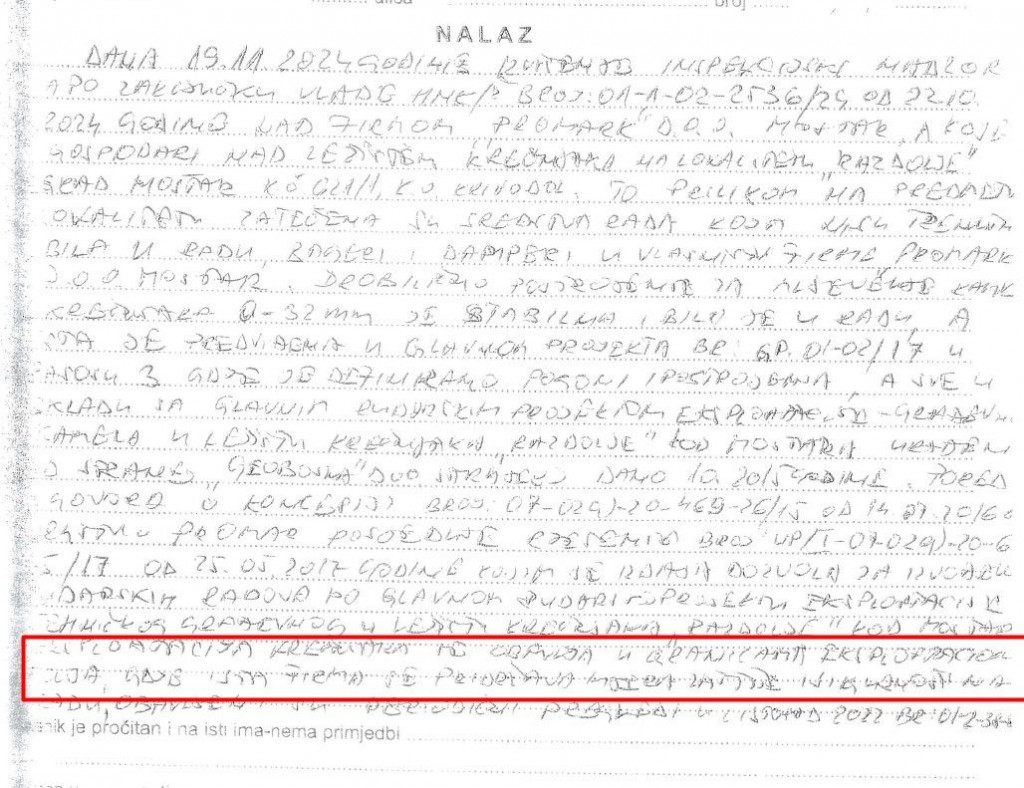 ulica broj
NALAZ
DANA 19.11.2024 GODINE IZVRŠENO INSPEKCIJSKI NADZOR
A PO ZAKLJUČKU VLADE HNK/Ž BROJ: 01-1-02-2536/24 OD 22.10.
2024 GODINE NAD FIRMOM PROMARK" D.O.O. MOSTAR, A KOJE
GOSPODARI NAD LEŽIŠTEM KREČNJAKA NA LOKALITETU „RAZDOLJE"
GRAD MOSTAR K.Č 621/1, K.O. KRIVODOL. TO PRILIKOM NA PREDMETN
LOKALITETU ZATEČENA SU SREDSTVA RADA KOJA NISU TRENUTN
BILA U RADU, BAGERI I DAMPERI U VLASNIŠTVU FIRME PROMARK
D.O.O. MOSTAR. DROBILIČNO POSTROJENJE ZA MLJEVENJE KAME
KREČNJAKA 0-32mm JE STABILNA I BILO JE U RADU, A
ISTA JE PREDVIĐENA U GLAVNOM PROJEKTA BR: GP. 01-02/17 U
3 GDJE JE DEFINIRANO POGONI I POSTROJENJA, A SVE U
SKLADU SA GLAVNIM RUDARSKIM PROJEKTOM EKSPLOATACIJE GRAĐEVN
KAMENA U LEŽIŠTU KREČNJAKA „RAZDOLJE" KOD MOSTARA URAĐEN
STRANE „GEOBOSNA" DOO SARAJEVO DANO 10.2015 GODINE. PORED
UGOVORA O KONCESIJI BROJ: 07-02g)-20-469-26/15 OD 14.07.2016
PROMAR POSJEDUJE RJEŠENJE BROJ UP/I-07-02g)-20-6
/17 OD 25.05.2017 GODINE KOJIM SE IZDAJE DOZVOLA ZA IZVOĐEN
RUDARSKIH RADOVA PO GLAVNOM RUDARSKOM PROJEKTU EKSPLOATACIJE
TEHNIČKOG GRAĐEVNOG U LEŽIŠTU KREČNJAKA „RAZDOLJE" KOD MOSTARA
EKSPLOATACIJA KREČNJAKA SE OBAVLJA U GRANICAMA EKSPLOATACION
POLJA, GDJE ISTA FIRMA SE PRIDRŽAVA MJERA ZAŠTITE I SIGURNOSTI NA
RADU, OBAVLJENI SU PERIODIČNI PREGLEDI U LISTOPAD 2022 BR 01-2-
nik je pročitan i na isti ima-nema primjedbi